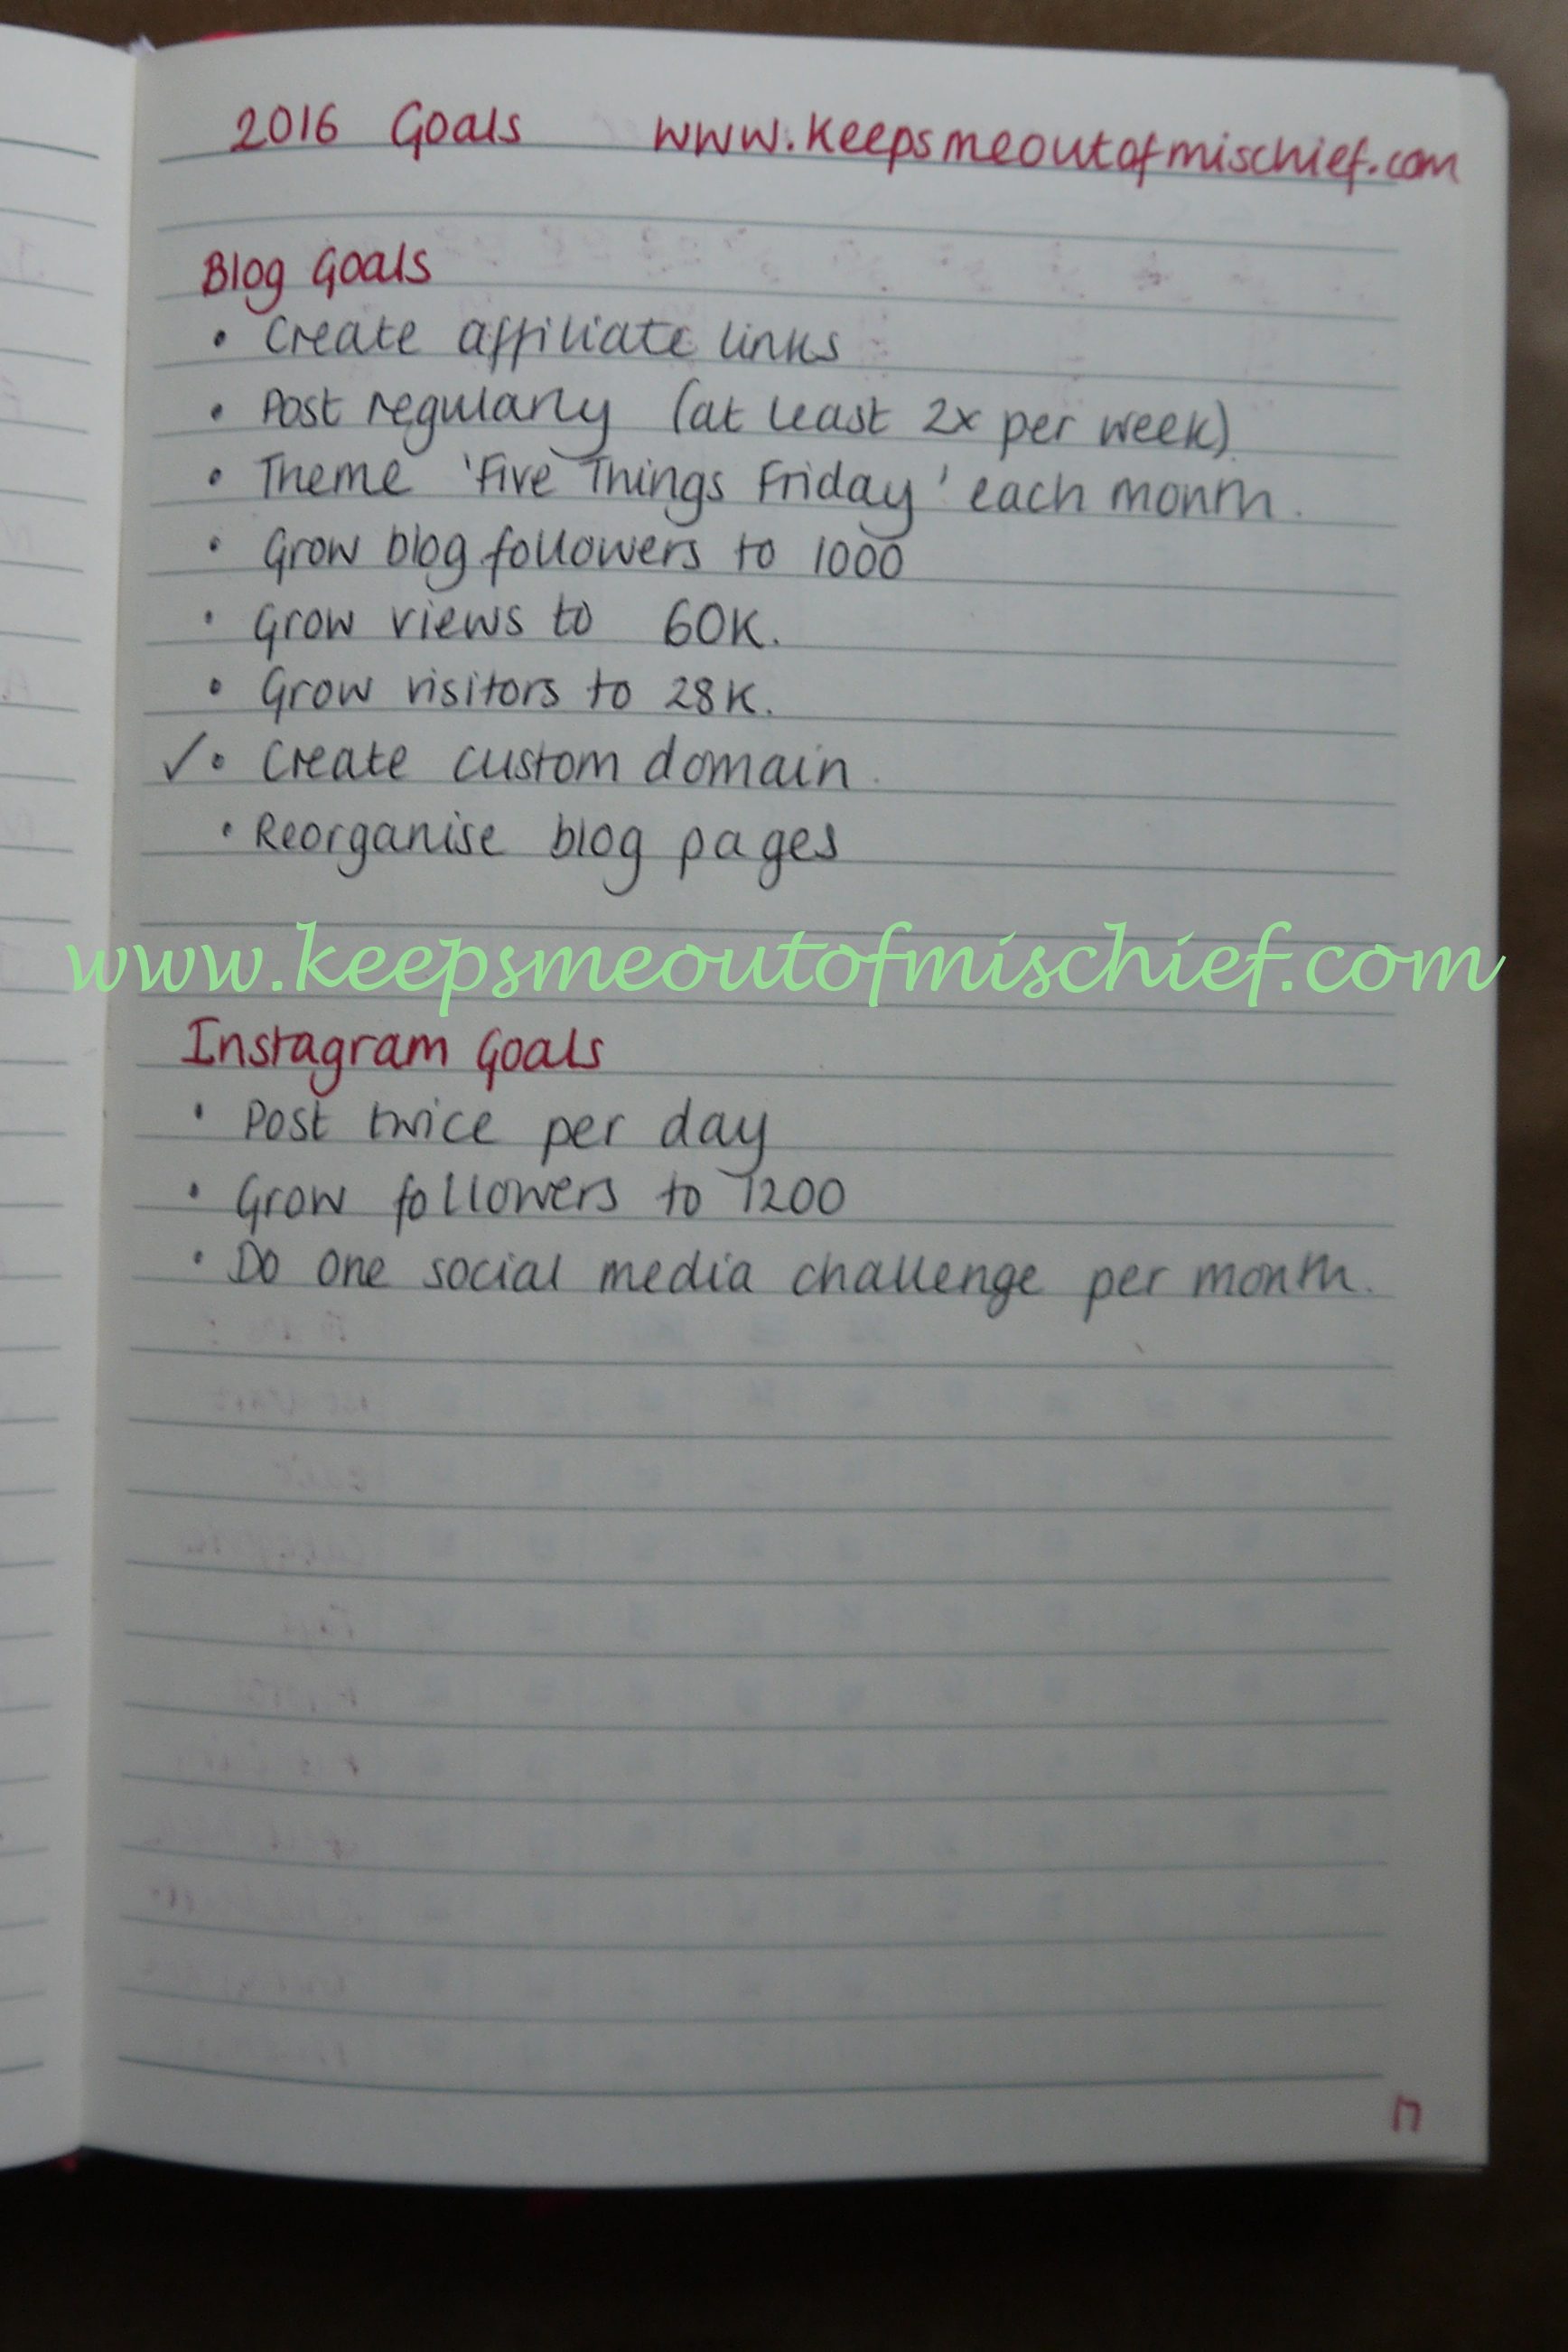 2016 Goals www.keepsmeoutofmischief.com
Blog Goals
• Create affiliate links
• Post regularly (at least 2x per week).
• Theme 'Five Things Friday' each month.
• Grow blog followers to 1000
• Grow views to 60K.
• Grow visitors to 28K.
✓• Create custom domain.
• Reorganise blog pages
www.keepsmeoutofmischief.com
Instagram Goals
• Post twice per day
• Grow followers to 1200
• Do one social media challenge per month.
17